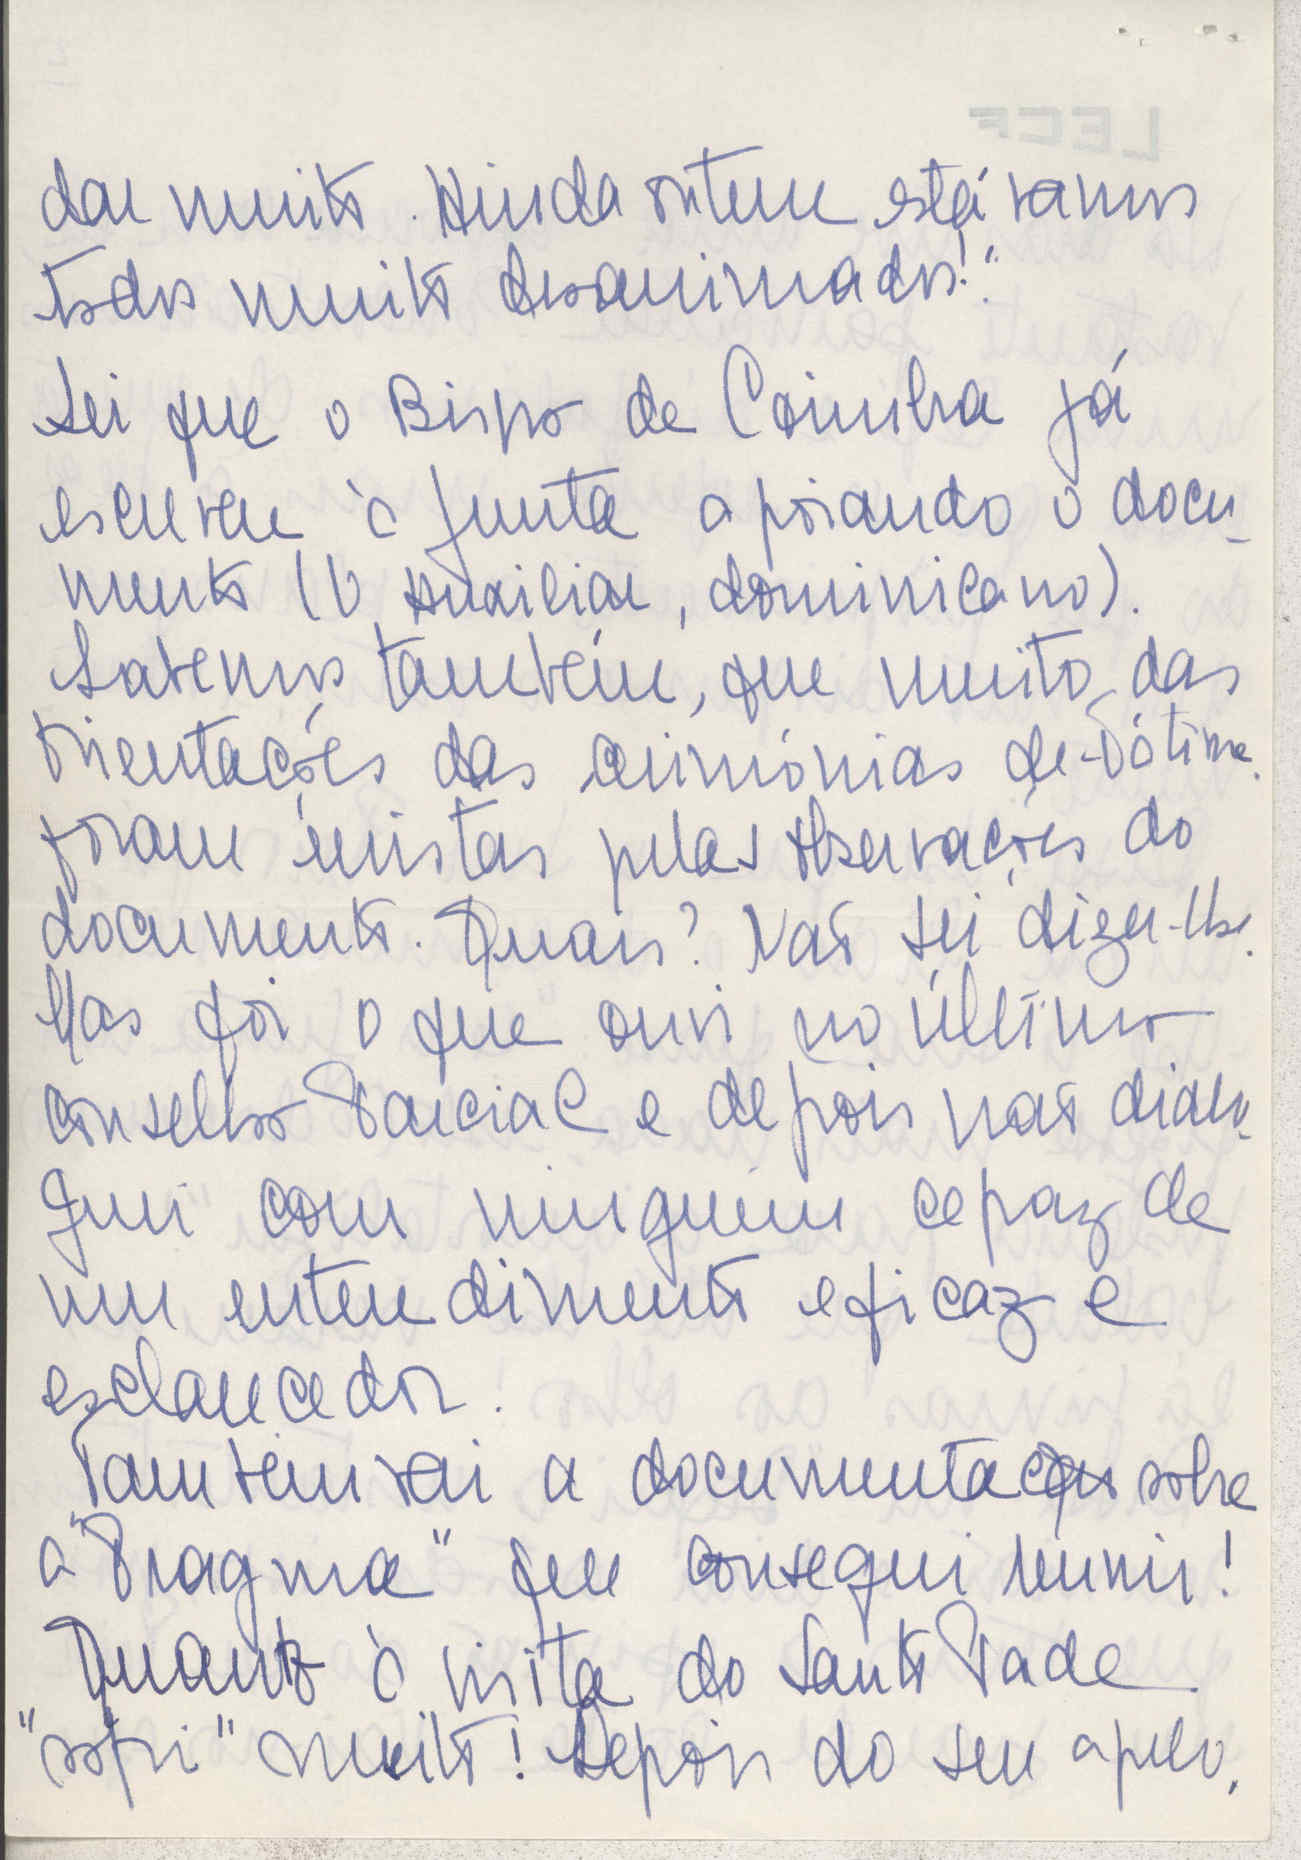 LECF
dar muito. Ainda ontem estávamos
todos muito desanimados!"
Sei que o Bispo de Coimbra já
escreveu à Junta apoiando o docu-
mento (O Auxiliar, dominicano).
Sabemos também, que muito das
orientações das cerimónias de Fátima
foram revistas pelas observações do
documento. Quais? Não sei dizer-lhe.
Mas foi o que ouvi no último
conselho Parcial e depois não dialo-
guei com ninguém capaz de
um entendimento eficaz e
esclarecedor.
Também vai a documentação sobre
a "Pragma" que consegui reunir!
Quanto à visita do Santo Padre
"sofri" muito! Depois do seu apelo,